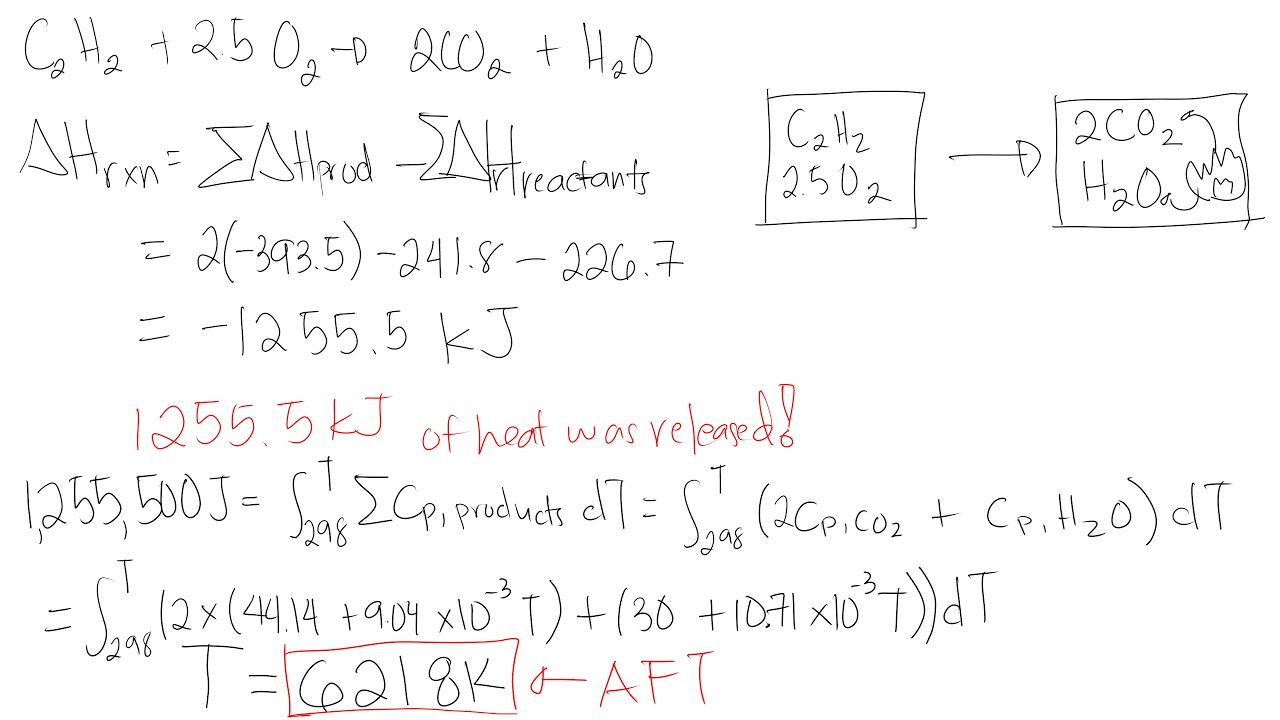 C₂H₂ + 2.5 O₂ → 2CO₂ + H₂O
C₂H₂
2.5 O₂
→
2CO₂
H₂O
ΔHrxn = ΣΔHprod - ΣΔHreactants
= 2(-393.5) - 241.8 - 226.7
= -1255.5 kJ
1255.5 kJ of heat was released!
1,255,500J = ∫₂₉₈ᵀ ΣCp, products dT = ∫₂₉₈ᵀ (2Cp,CO₂ + Cp,H₂O) dT
= ∫₂₉₈ᵀ (2 × (44.14 + 9.04 × 10⁻³ T) + (30 + 10.71 × 10⁻³ T)) dT
T = 6218K ← AFT